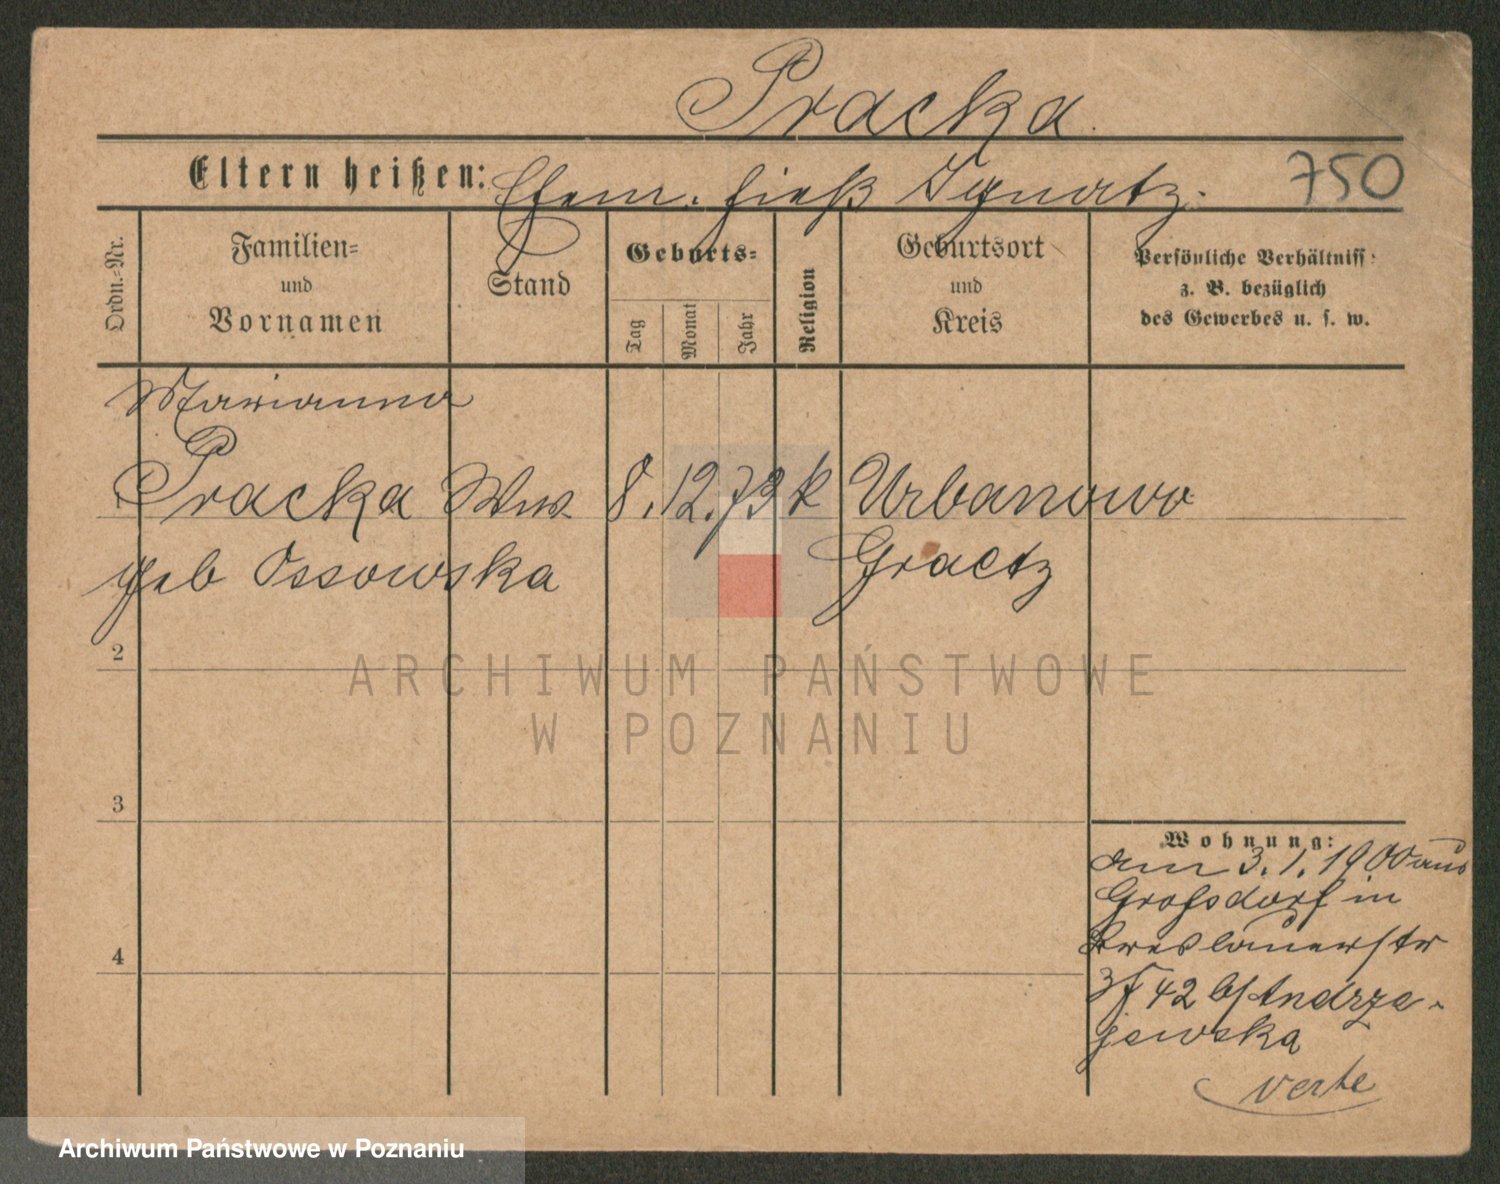 Pracka.
Eltern heißen: Ehem. hieß Ignatz.
750
Ordn.-Nr.
Familien-
und
Vornamen
Stand
Geburts-
Tag
Monat
Jahr
Religion
Geburtsort
und
Kreis
Persönliche Verhältniss:
z. B. bezüglich
des Gewerbes u. s. w.
Marianna
1 Pracka Ww. 8. 12. 73 k Urbanowo
geb Ossowska Graetz
2
3
4
Wohnung:
am 3.1.1900 aus
Grossdorf in
Breslauerstr
42 b/ Andrze-
jewska
verte
ARCHIWUM PAŃSTWOWE
W POZNANIU
Archiwum Państwowe w Poznaniu